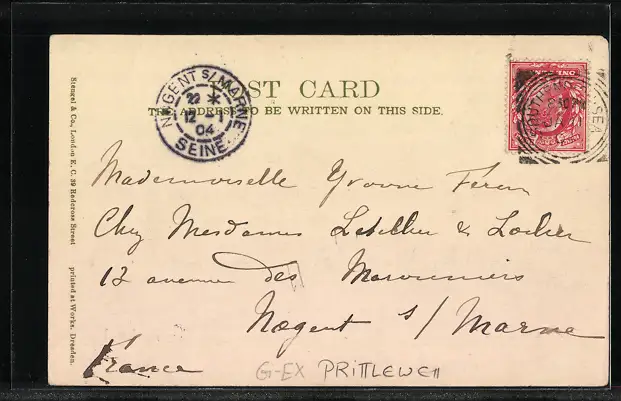 POST CARD
THE ADDRESS TO BE WRITTEN ON THIS SIDE.
NOGENT S/MARNE
12
04
SEINE
SOUTHEND SEA
Stengel & Co., London E. C. 39 Redcross Street
printed at Works, Dresden.
Mademoiselle Yvonne
Chez Mesdames & 
12 avenue des Marronniers
Nogent s/ Marne
France
G-EX PRITTLEWELL